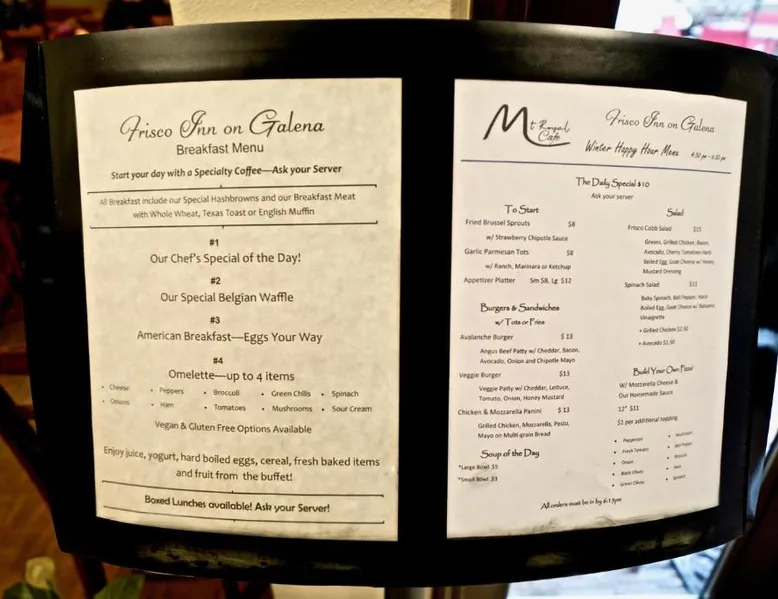 Frisco Inn on Galena
Breakfast Menu
Start your day with a Specialty Coffee—Ask your Server
All Breakfast include our Special Hashbrowns and our Breakfast Meat
with Whole Wheat, Texas Toast or English Muffin
#1
Our Chef's Special of the Day!
#2
Our Special Belgian Waffle
#3
American Breakfast—Eggs Your Way
#4
Omelette—up to 4 items
• Cheese • Peppers • Broccoli • Green Chilis • Spinach
• Onions • Ham • Tomatoes • Mushrooms • Sour Cream
Vegan & Gluten Free Options Available
Enjoy juice, yogurt, hard boiled eggs, cereal, fresh baked items
and fruit from the buffet!
Boxed Lunches available! Ask your Server!
Mt Royal
Cafe
Frisco Inn on Galena
Winter Happy Hour Menu
The Daily Special $10
Ask your server
To Start
Fried Brussel Sprouts $8
w/ Strawberry Chipotle Sauce
Garlic Parmesan Tots $8
w/ Ranch, Marinara or Ketchup
Appetizer Platter Sm $8, Lg $12
Burgers & Sandwiches
w/ Tots or Fries
Avalanche Burger $ 13
Angus Beef Patty w/ Cheddar, Bacon,
Avocado, Onion and Chipotle Mayo
Veggie Burger $13
Veggie Patty w/ Cheddar, Lettuce,
Tomato, Onion, Honey Mustard
Chicken & Mozzarella Panini $ 13
Grilled Chicken, Mozzarella, Pesto,
Mayo on Multi-grain Bread
Soup of the Day
*Large Bowl $5
*Small Bowl $3
Salad
Frisco Cobb Salad $15
Greens, Grilled Chicken, Bacon,
Avocado, Cherry Tomatoes Hard
Boiled Egg, Goat Cheese w/ Honey
Mustard Dressing
Spinach Salad $11
Baby Spinach, Bell Pepper, Hard
Boiled Egg, Goat Cheese w/ Balsamic
Vinaigrette
• Grilled Chicken $2.50
• Avocado $1.50
Build Your Own Pizza!
W/ Mozzarella Cheese &
Our Homemade Sauce
12" $11
$1 per additional topping
• Pepperoni • Mushroom
• Fresh Tomato • Bell Pepper
• Onion • Broccoli
• Black Olives
• Green Olives • Spinach
All orders must be in by 6:15pm